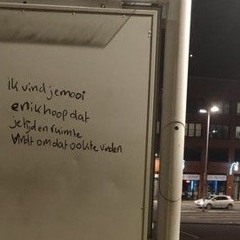 ik vind je mooi
en ik hoop dat
je tijd en ruimte
vindt om dat ook te vinden